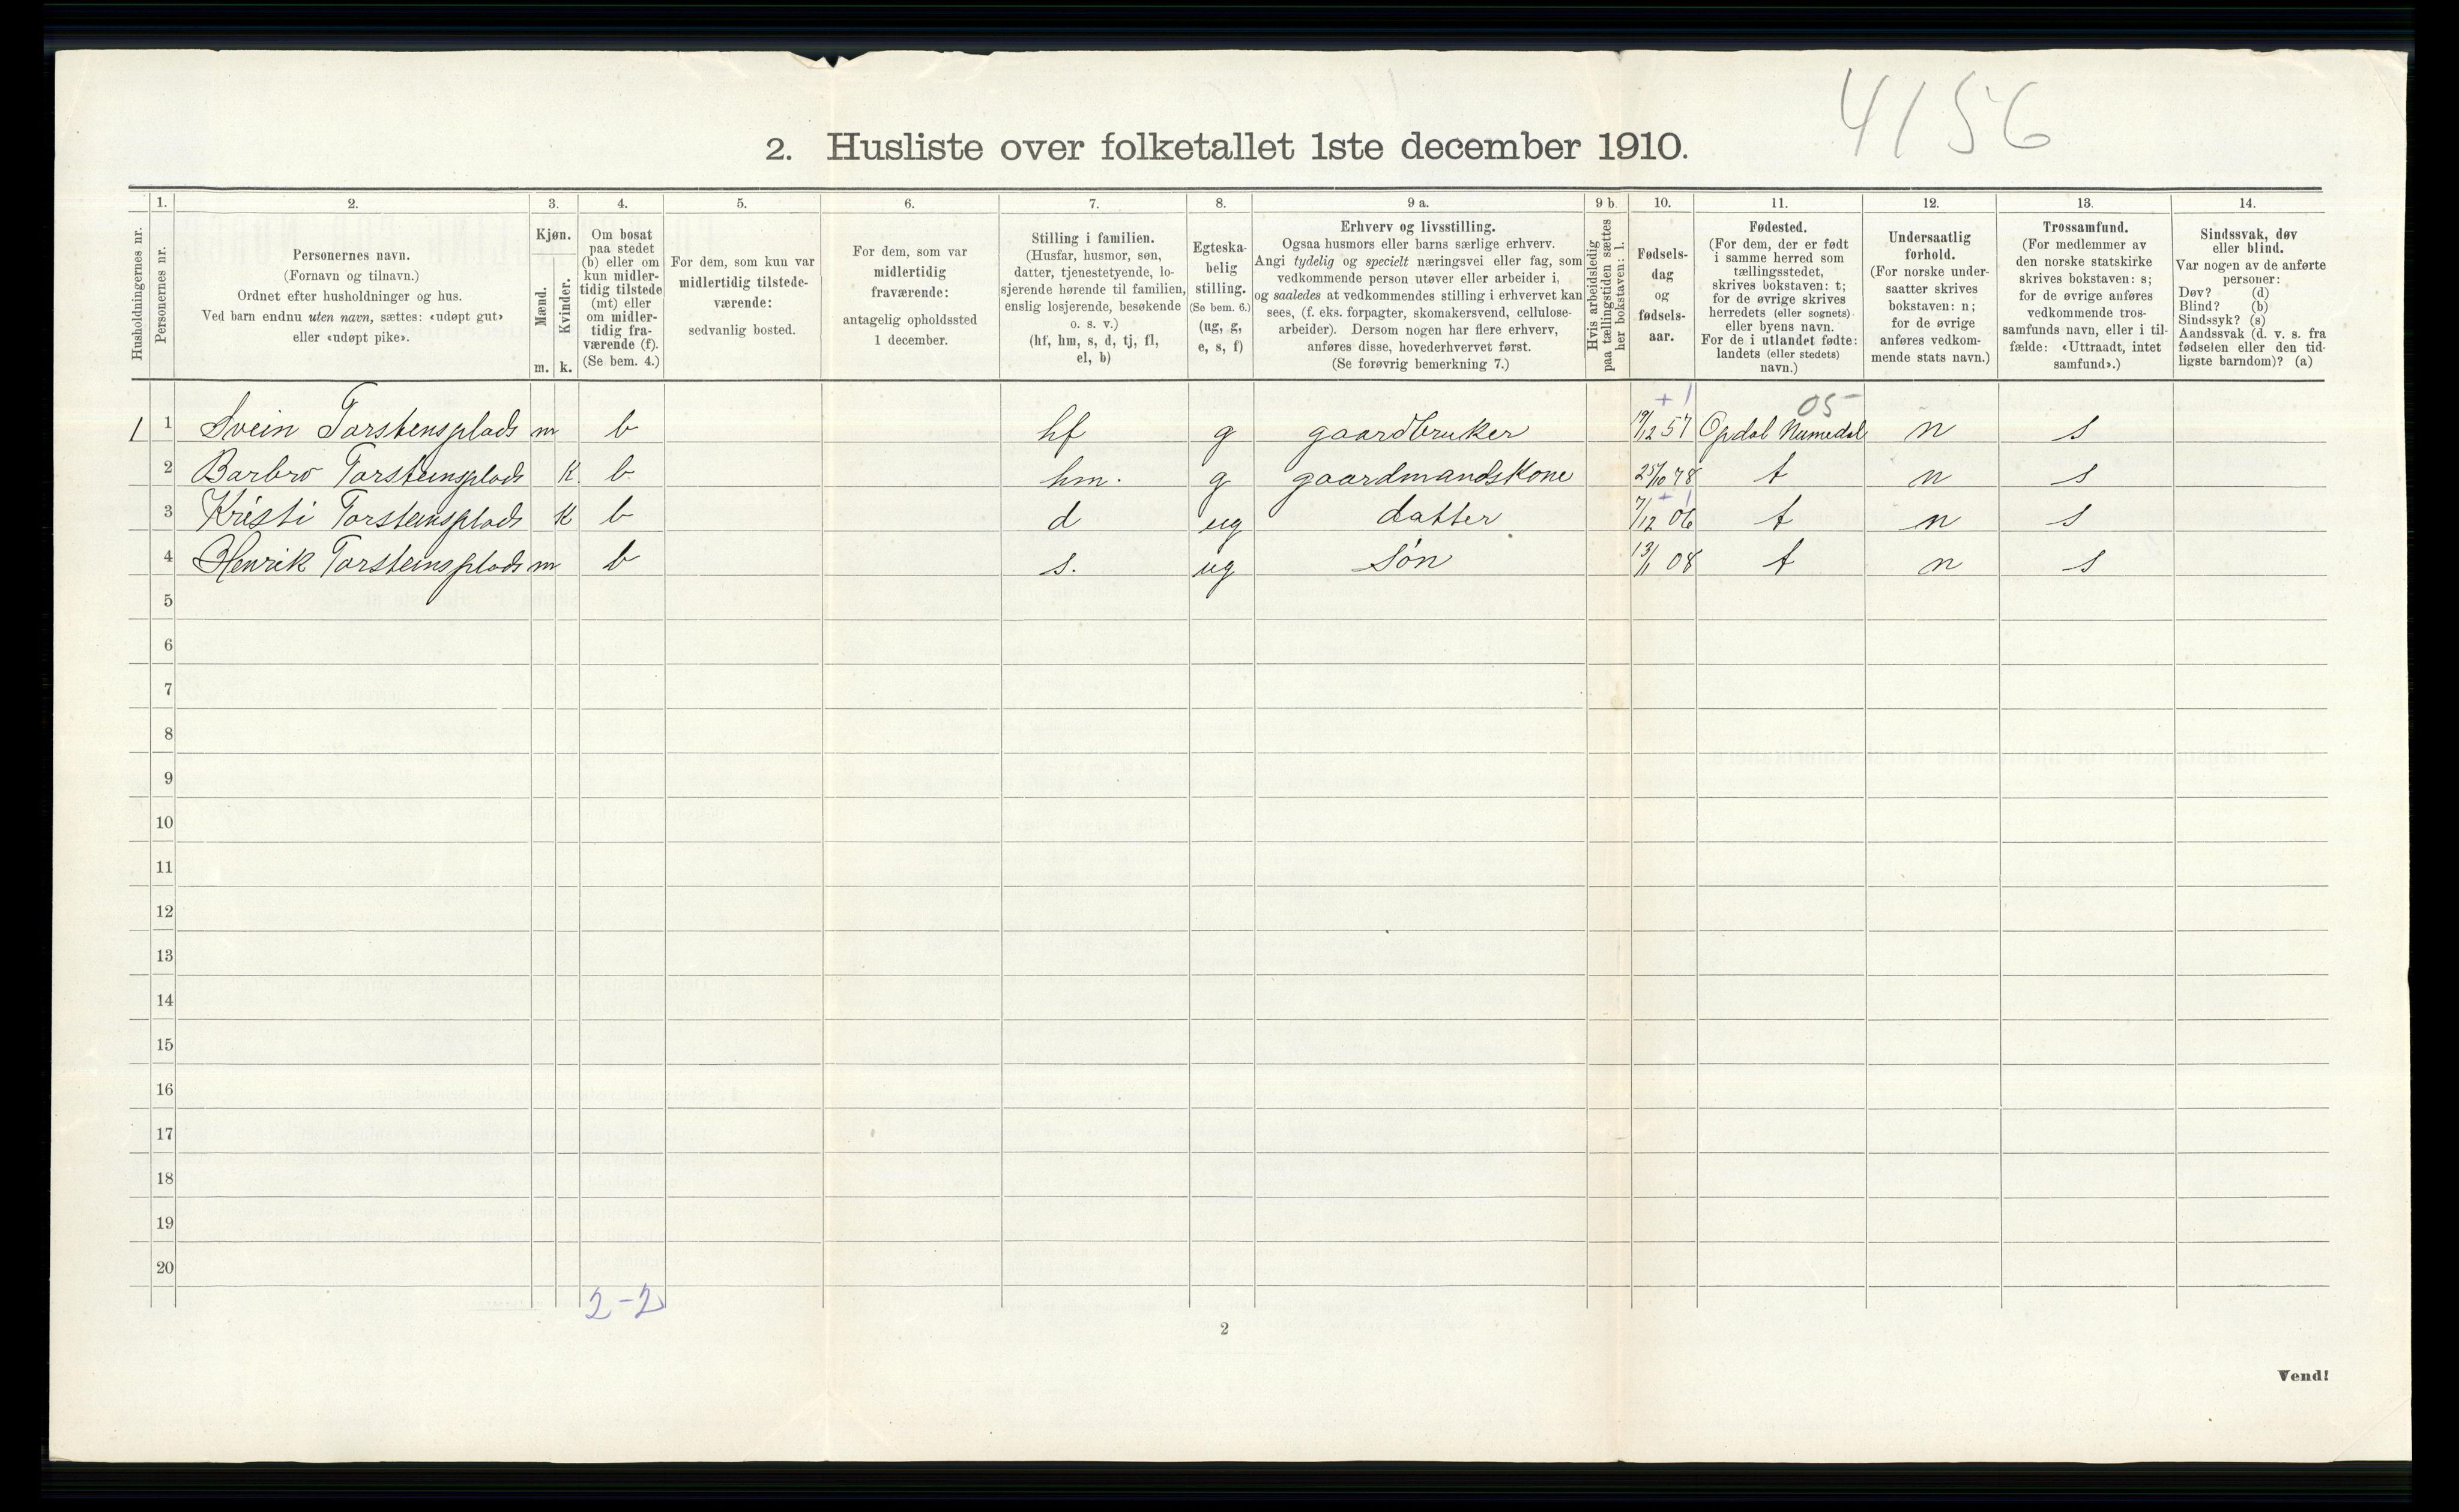 4156
2. Husliste over folketallet 1ste december 1910.
Husholdningernes nr.
1.
Personernes nr.
2.
Personernes navn.
(Fornavn og tilnavn.)
Ordnet efter husholdninger og hus.
Ved barn endnu uten navn, sættes: «udøpt gut»
eller «udøpt pike».
3.
Kjøn.
Mænd.
Kvinder.
m. k.
4.
Om bosat
paa stedet
(b) eller om
kun midler-
tidig tilstede
(mt) eller
om midler-
tidig fra-
værende (f).
(Se bem. 4.)
5.
For dem, som kun var
midlertidig tilstede-
værende:
sedvanlig bosted.
6.
For dem, som var
midlertidig
fraværende:
antagelig opholdssted
1 december.
7.
Stilling i familien.
(Husfar, husmor, søn,
datter, tjenestetyende, lo-
sjerende hørende til familien,
enslig losjerende, besøkende
o. s. v.)
(hf, hm, s, d, tj, fl,
el, b)
8.
Egteska-
belig
stilling.
(Se bem. 6.)
(ug, g,
e, s, f)
9 a.
Erhverv og livsstilling.
Ogsaa husmors eller barns særlige erhverv.
Angi tydelig og specielt næringsvei eller fag, som
vedkommende person utøver eller arbeider i,
og saaledes at vedkommendes stilling i erhvervet kan
sees, (f. eks. forpagter, skomakersvend, cellulose-
arbeider). Dersom nogen har flere erhverv,
anføres disse, hovederhvervet først.
(Se forøvrig bemerkning 7.)
9 b.
Hvis arbeidsledig
paa tællingstiden sættes
her bokstaven: l.
10.
Fødsels-
dag
og
fødsels-
aar.
11.
Fødested.
(For dem, der er født
i samme herred som
tællingsstedet,
skrives bokstaven: t;
for de øvrige skrives
herredets (eller sognets)
eller byens navn.
For de i utlandet fødte:
landets (eller stedets)
navn.)
12.
Undersaatlig
forhold.
(For norske under-
saatter skrives
bokstaven: n;
for de øvrige
anføres vedkom-
mende stats navn.)
13.
Trossamfund.
(For medlemmer av
den norske statskirke
skrives bokstaven: s;
for de øvrige anføres
vedkommende tros-
samfunds navn, eller i til-
fælde: «Uttraadt, intet
samfund».)
14.
Sindssvak, døv
eller blind.
Var nogen av de anførte
personer:
Døv? (d)
Blind? (b)
Sindssyk? (s)
Aandssvak (d. v. s. fra
fødselen eller den tid-
ligste barndom)? (a)
+ 1 05-
1 1 Svein Torstensplads m b hf g gaardbruker 19/12 57 Opdal Numedal n s
2 Barbro Torsteinsplads K b hm. g gaardmandskone 25/10 78 t n s
+ 1
3 Kristi Torsteinsplads K b d ug datter 7/12 06 t n s
4 Henrik Torsteinsplads m b s. ug søn 13/1 08 t n s
5
6
7
8
9
10
11
12
13
14
15
16
17
18
19
20
2-2
2
Vend!